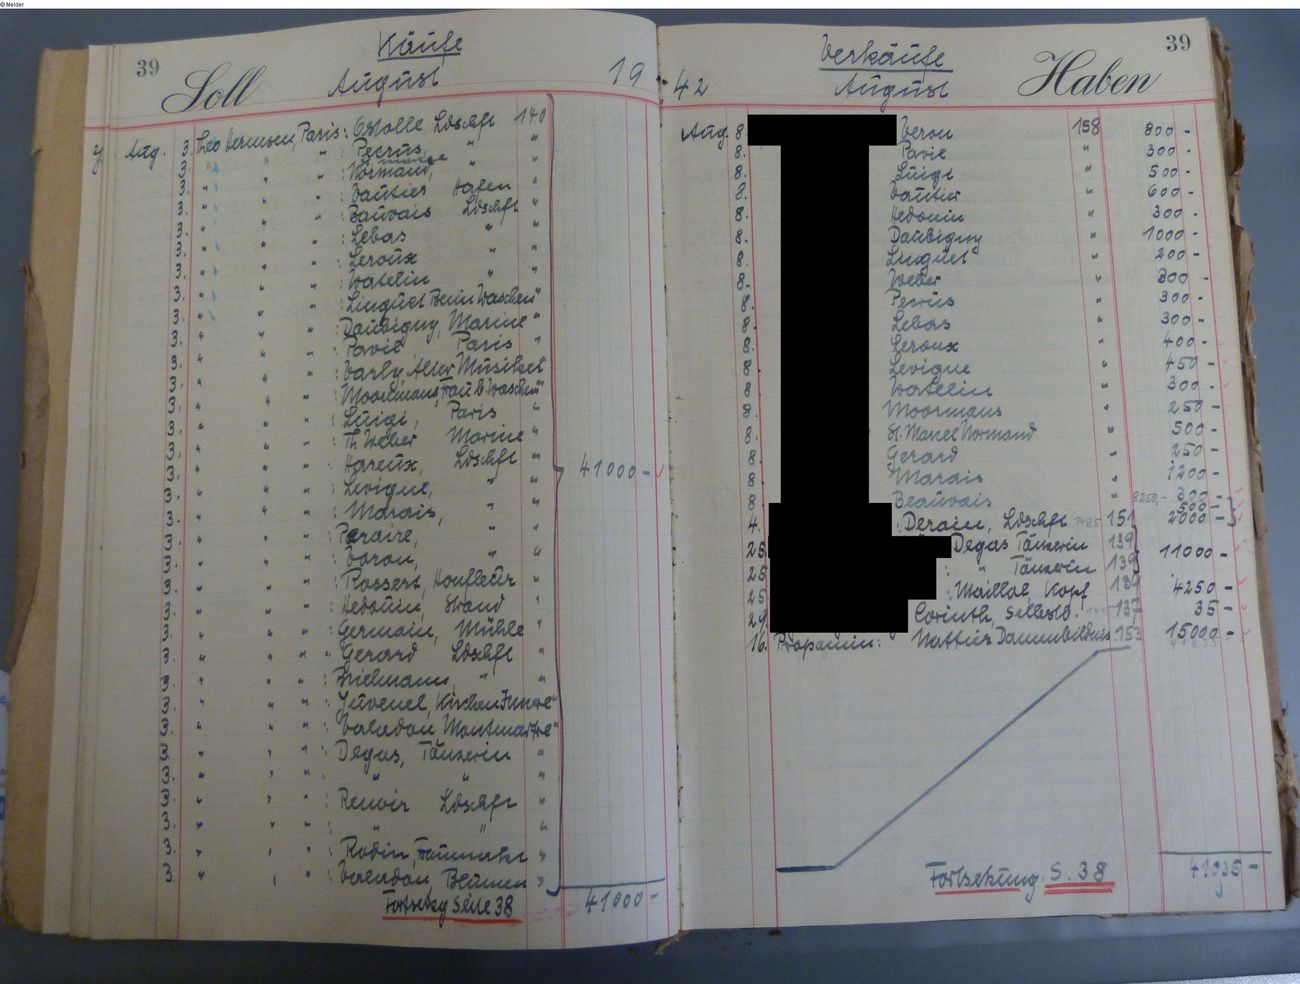 © Melder
39
Käufe
Soll August 19
Aug. 3. Theo Hermsen, Paris: Estolle Ldschft 140
3. " " " : Petrus, " "
3. " " " : Normand, "
3. " " " : Vautier Hafen "
3. " " " : Bauvais Ldschft "
3. " " " : Lebas " "
3. " " " : Leroux " "
3. " " " : Watelin " "
3. " " " : Linguet Beim Waschen "
3. " " " : Daubigny, Marine "
3. " " " : Pavie Paris "
3. " " " : Varly Alter Musiker
3. " " " : Moormans, Frau b. Waschen "
3. " " " : Luigi, Paris "
3. " " " : Th. Weber Marine "
3. " " " : Hareux, Ldschft " 41000 -
3. " " " : Levigne, " "
3. " " " : Marais, " "
3. " " " : Peraire, " "
3. " " " : Voron, " "
3. " " " : Rossert, Honfleur "
3. " " " : Hedouin, Strand "
3. " " " : Germain, Mühle "
3. " " " : Gerard Ldschft "
3. " " " : Brielmann, " "
3. " " " : Juvenel, "
3. " " " : Valadon Montmartre "
3. " " " : Degas, Tänzerin "
3. " " " : " " "
3. " " " : Renoir Ldschft "
3. " " " : " " "
3. " " " : Rodin, "
3. " " " : Valadon, Blumen "
Fortsetzg Seite 38 41000 -
39
Verkäufe
42 August Haben
Aug. 8. Veron 158 800 -
8. Pavie " 300 -
8. Luigi " 500 -
8. Vautier " 600 -
8. Hedouin " 300 -
8. Daubigny " 1000 -
8. Linguet " 200 -
8. Weber " 300 -
8. Petrus " 300 -
8. Lebas " 300 -
8. Leroux " 400 -
8. Levigne " 450 -
8. Watelin " 300 -
8. Moormans " 250 -
8. St. Marcel Normand " 500 -
8. Gerard " 250 -
8. Marais " 1200 -
8. Beauvais " 8250,- 300 -
500 -
4. Derain, Ldschft 151 2000 -
25. Degas Tänzerin 139
25. " Tänzerin 139 11000 -
25. Maillol, Kopf 139 4250 -
29. Corinth, Selbstb. 137 35 -
16. Propanin: Nattier Damenbildnis 153 15000 -
Fortsetzung S. 38 41935 -